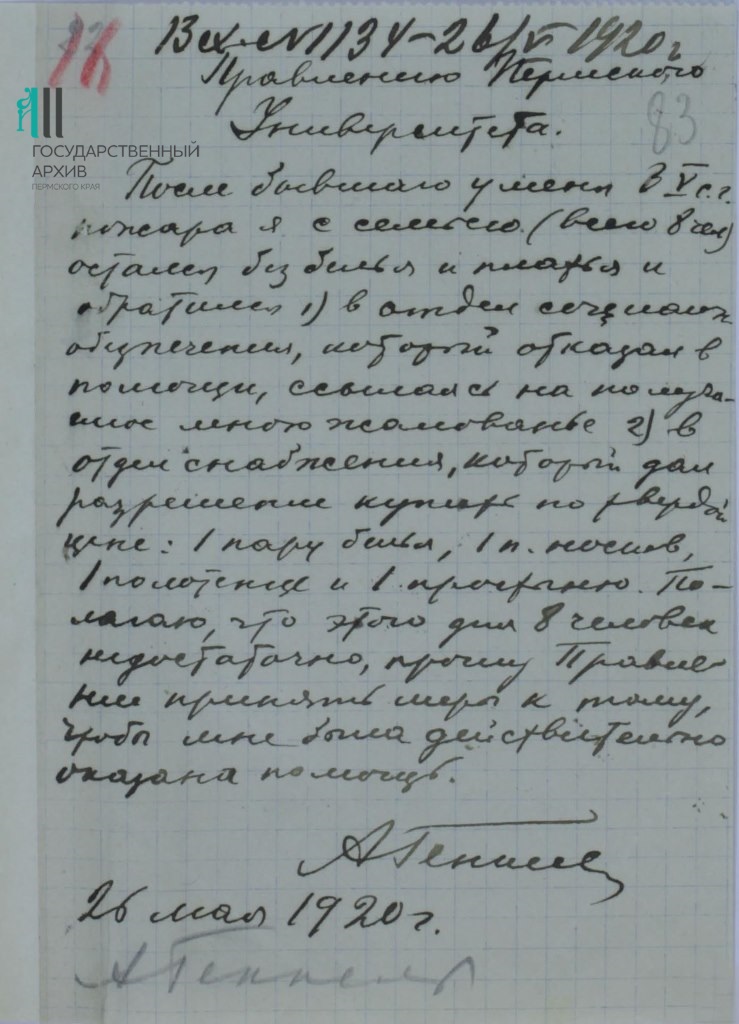 82
18
Вх. № 1134 – 26/V 1920 г
Правлению Пермского
83
Университета.
ГОСУДАРСТВЕННЫЙ
АРХИВ
ПЕРМСКОГО КРАЯ
После бывшаго у меня 3 V с. г.
пожара я с семьею (всего 8 чел)
остался без белья и платья и
обратился 1) в отдел социальн
обезпечения, который отказал в
помощи, ссылаясь на получа-
емое мною жалованье 2) в
отдел снабжения, который дал
разрешение купить по твердой
цене: 1 пару белья, 1 п. носков,
1 полотенце и 1 простыню. По-
лагаю, что этого для 8 человек
недостаточно, прошу Правле-
ние принять меры к тому,
чтобы мне была действительно
оказана помощь.
АГенкель
26 мая 1920 г.
АГенкель